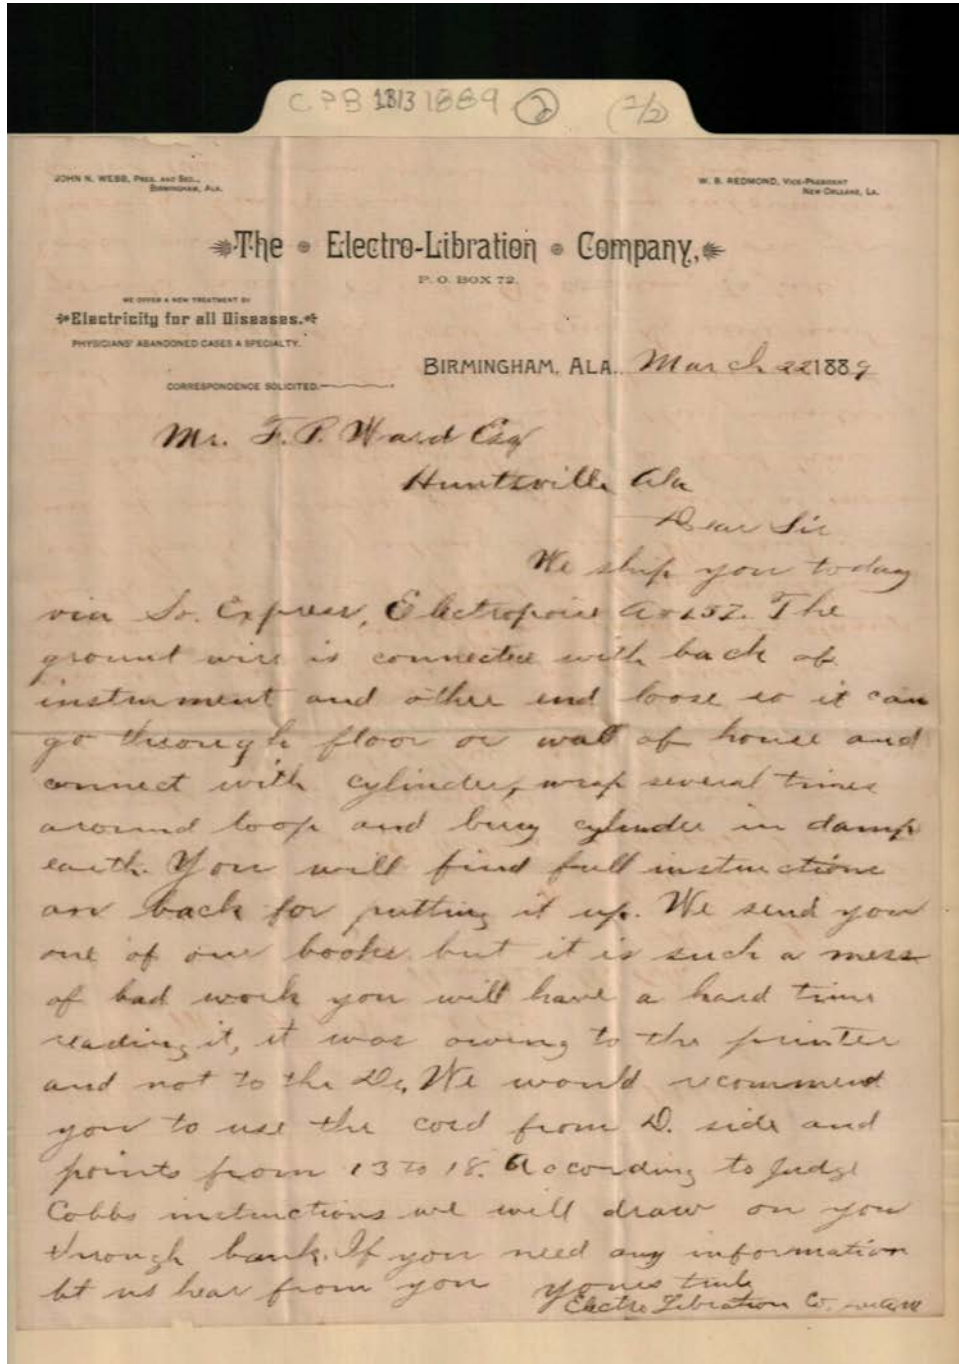 CPB 1813 1889 2 (1/2)
JOHN N. WEBB, PRES. AND SEC.,
BIRMINGHAM, ALA.
W. B. REDMOND, VICE-PRESIDENT
NEW ORLEANS, LA.
The Electro-Libration Company,
P. O. BOX 72.
WE OFFER A NEW TREATMENT BY
Electricity for all Diseases.
PHYSICIANS' ABANDONED CASES A SPECIALTY.
CORRESPONDENCE SOLICITED.
BIRMINGHAM, ALA., March 22 1889
Mr. F. P. Ward Esq
Huntsville Ala
Dear Sir
We ship you today
via So. Express, Electropoise The
ground wire is connected with back of
instrument and other end loose so it can
go through floor or wall of house and
connect with cylinder, wrap several times
around loop and bury cylinder in damp
earth. You will find full instructions
on back for putting it up. We send you
one of our books but it is such a mess
of bad work you will have a hard time
reading it, it was owing to the printer
and not to the Dr. We would recommend
you to use the cord from D. side and
points from 13 to 18. According to Judge
Cobbs instructions we will draw on you
through bank. If you need any information
let us hear from you yours truly
Electro Libration Co.